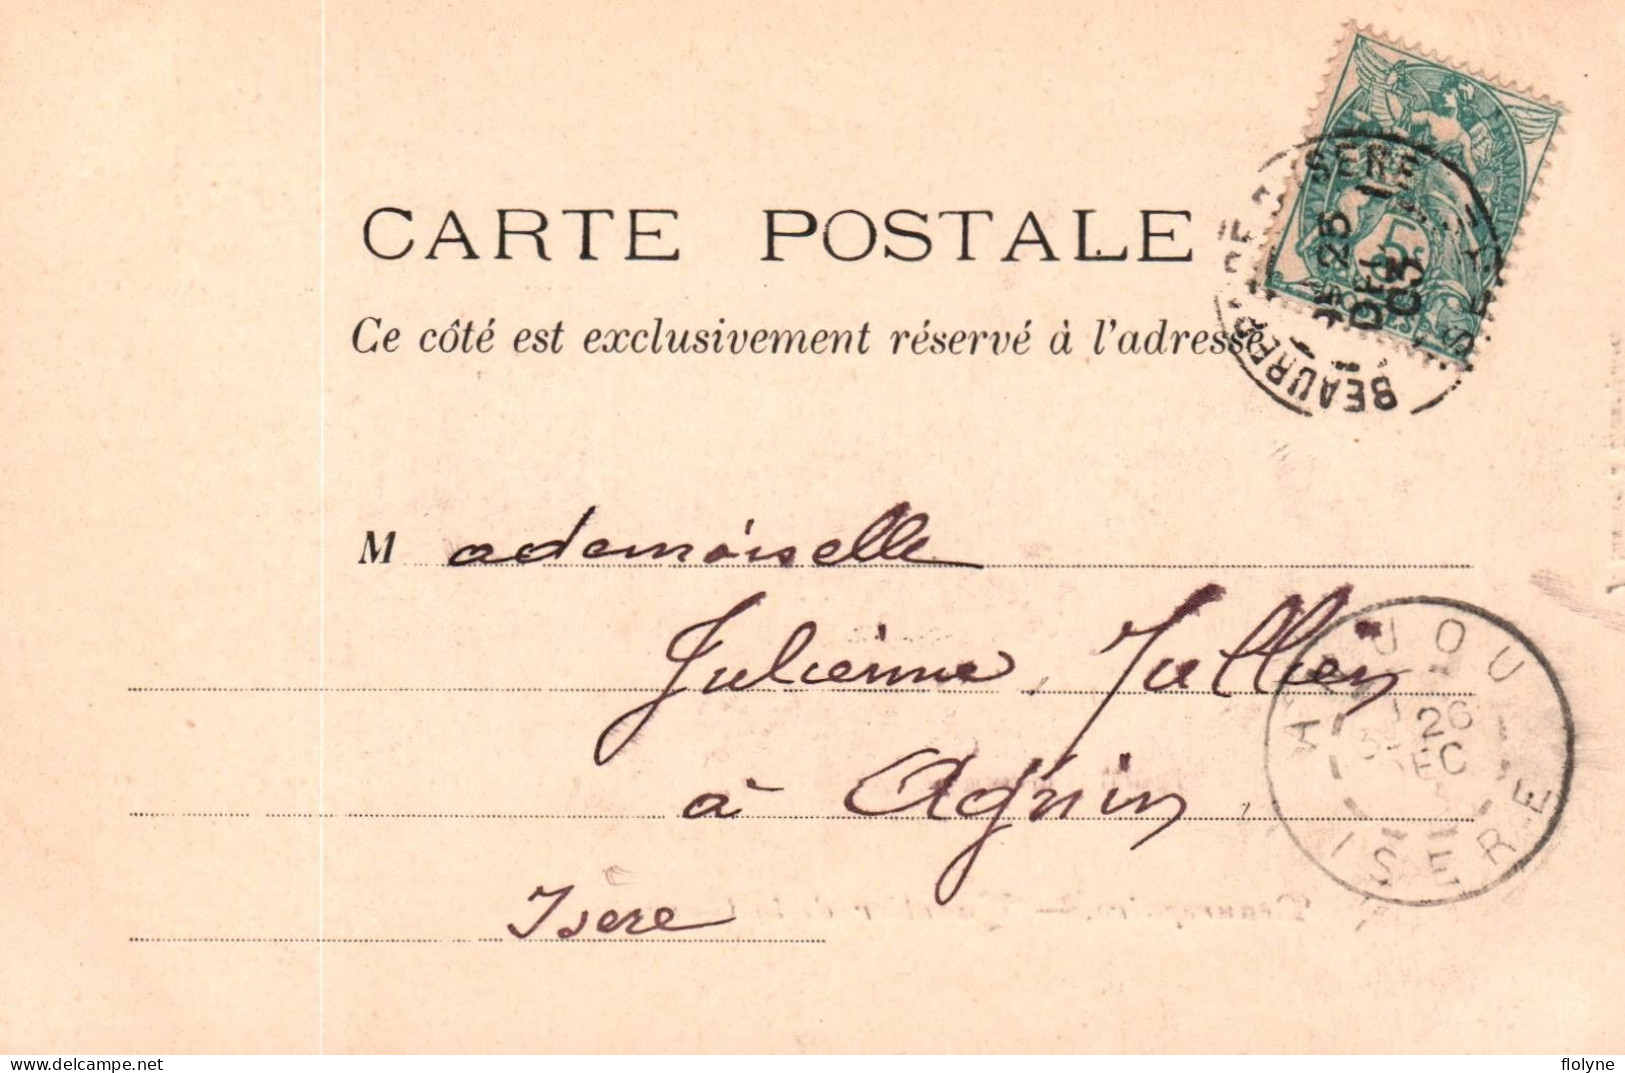 CARTE POSTALE
Ce côté est exclusivement réservé à l'adresse
BEAUREP ISERE
25
DEC
03
5
Mademoiselle
Julienne Jullien
à Agnin
Isère
ANJOU
26
DEC
ISERE
delcampe.net
flolyne